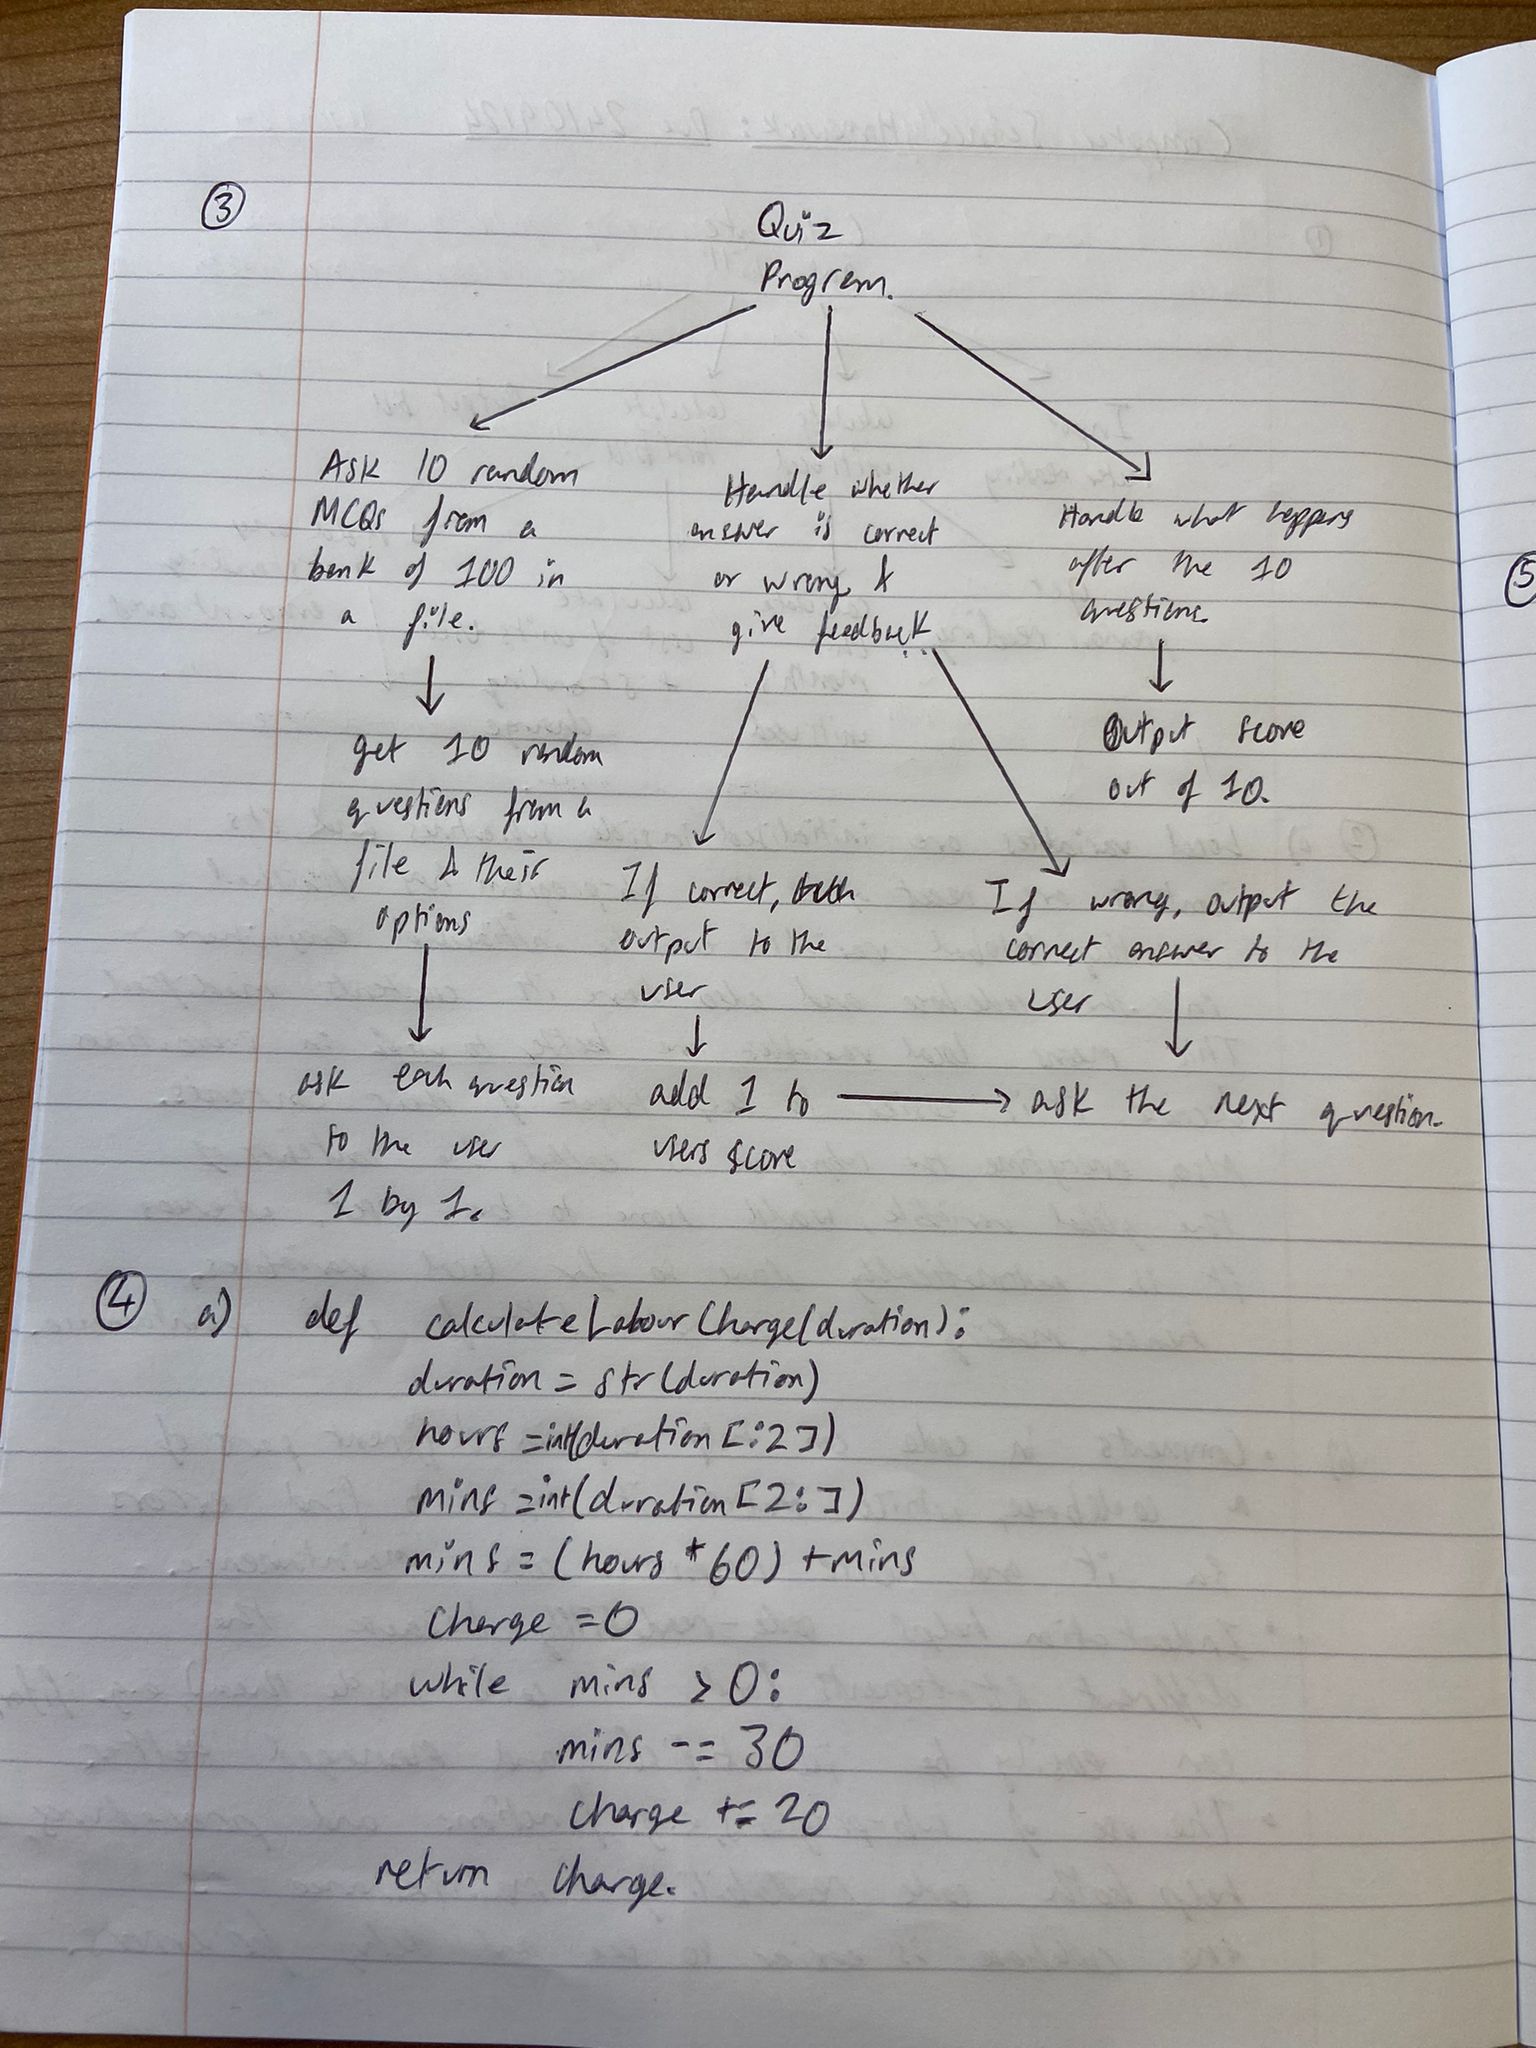 ③
Quiz
Program.
Ask 10 random
MCQs from a
bank of 100 in
a file.
get 10 random
questions from a
file & their
options
ask each question
to the user
1 by 1.
Handle whether
answer is correct
or wrong &
give feedback
If correct,
output to the
user
add 1 to
users score
If wrong, output the
correct answer to the
user
ask the next question.
Handle what happens
after the 10
questions.
Output score
out of 10.
④ a) def calculateLabourCharge(duration):
duration = str(duration)
hours = int(duration[:2])
mins = int(duration[2:])
mins = (hours * 60) + mins
charge = 0
while mins > 0:
mins -= 30
charge += 20
return charge.
⑤